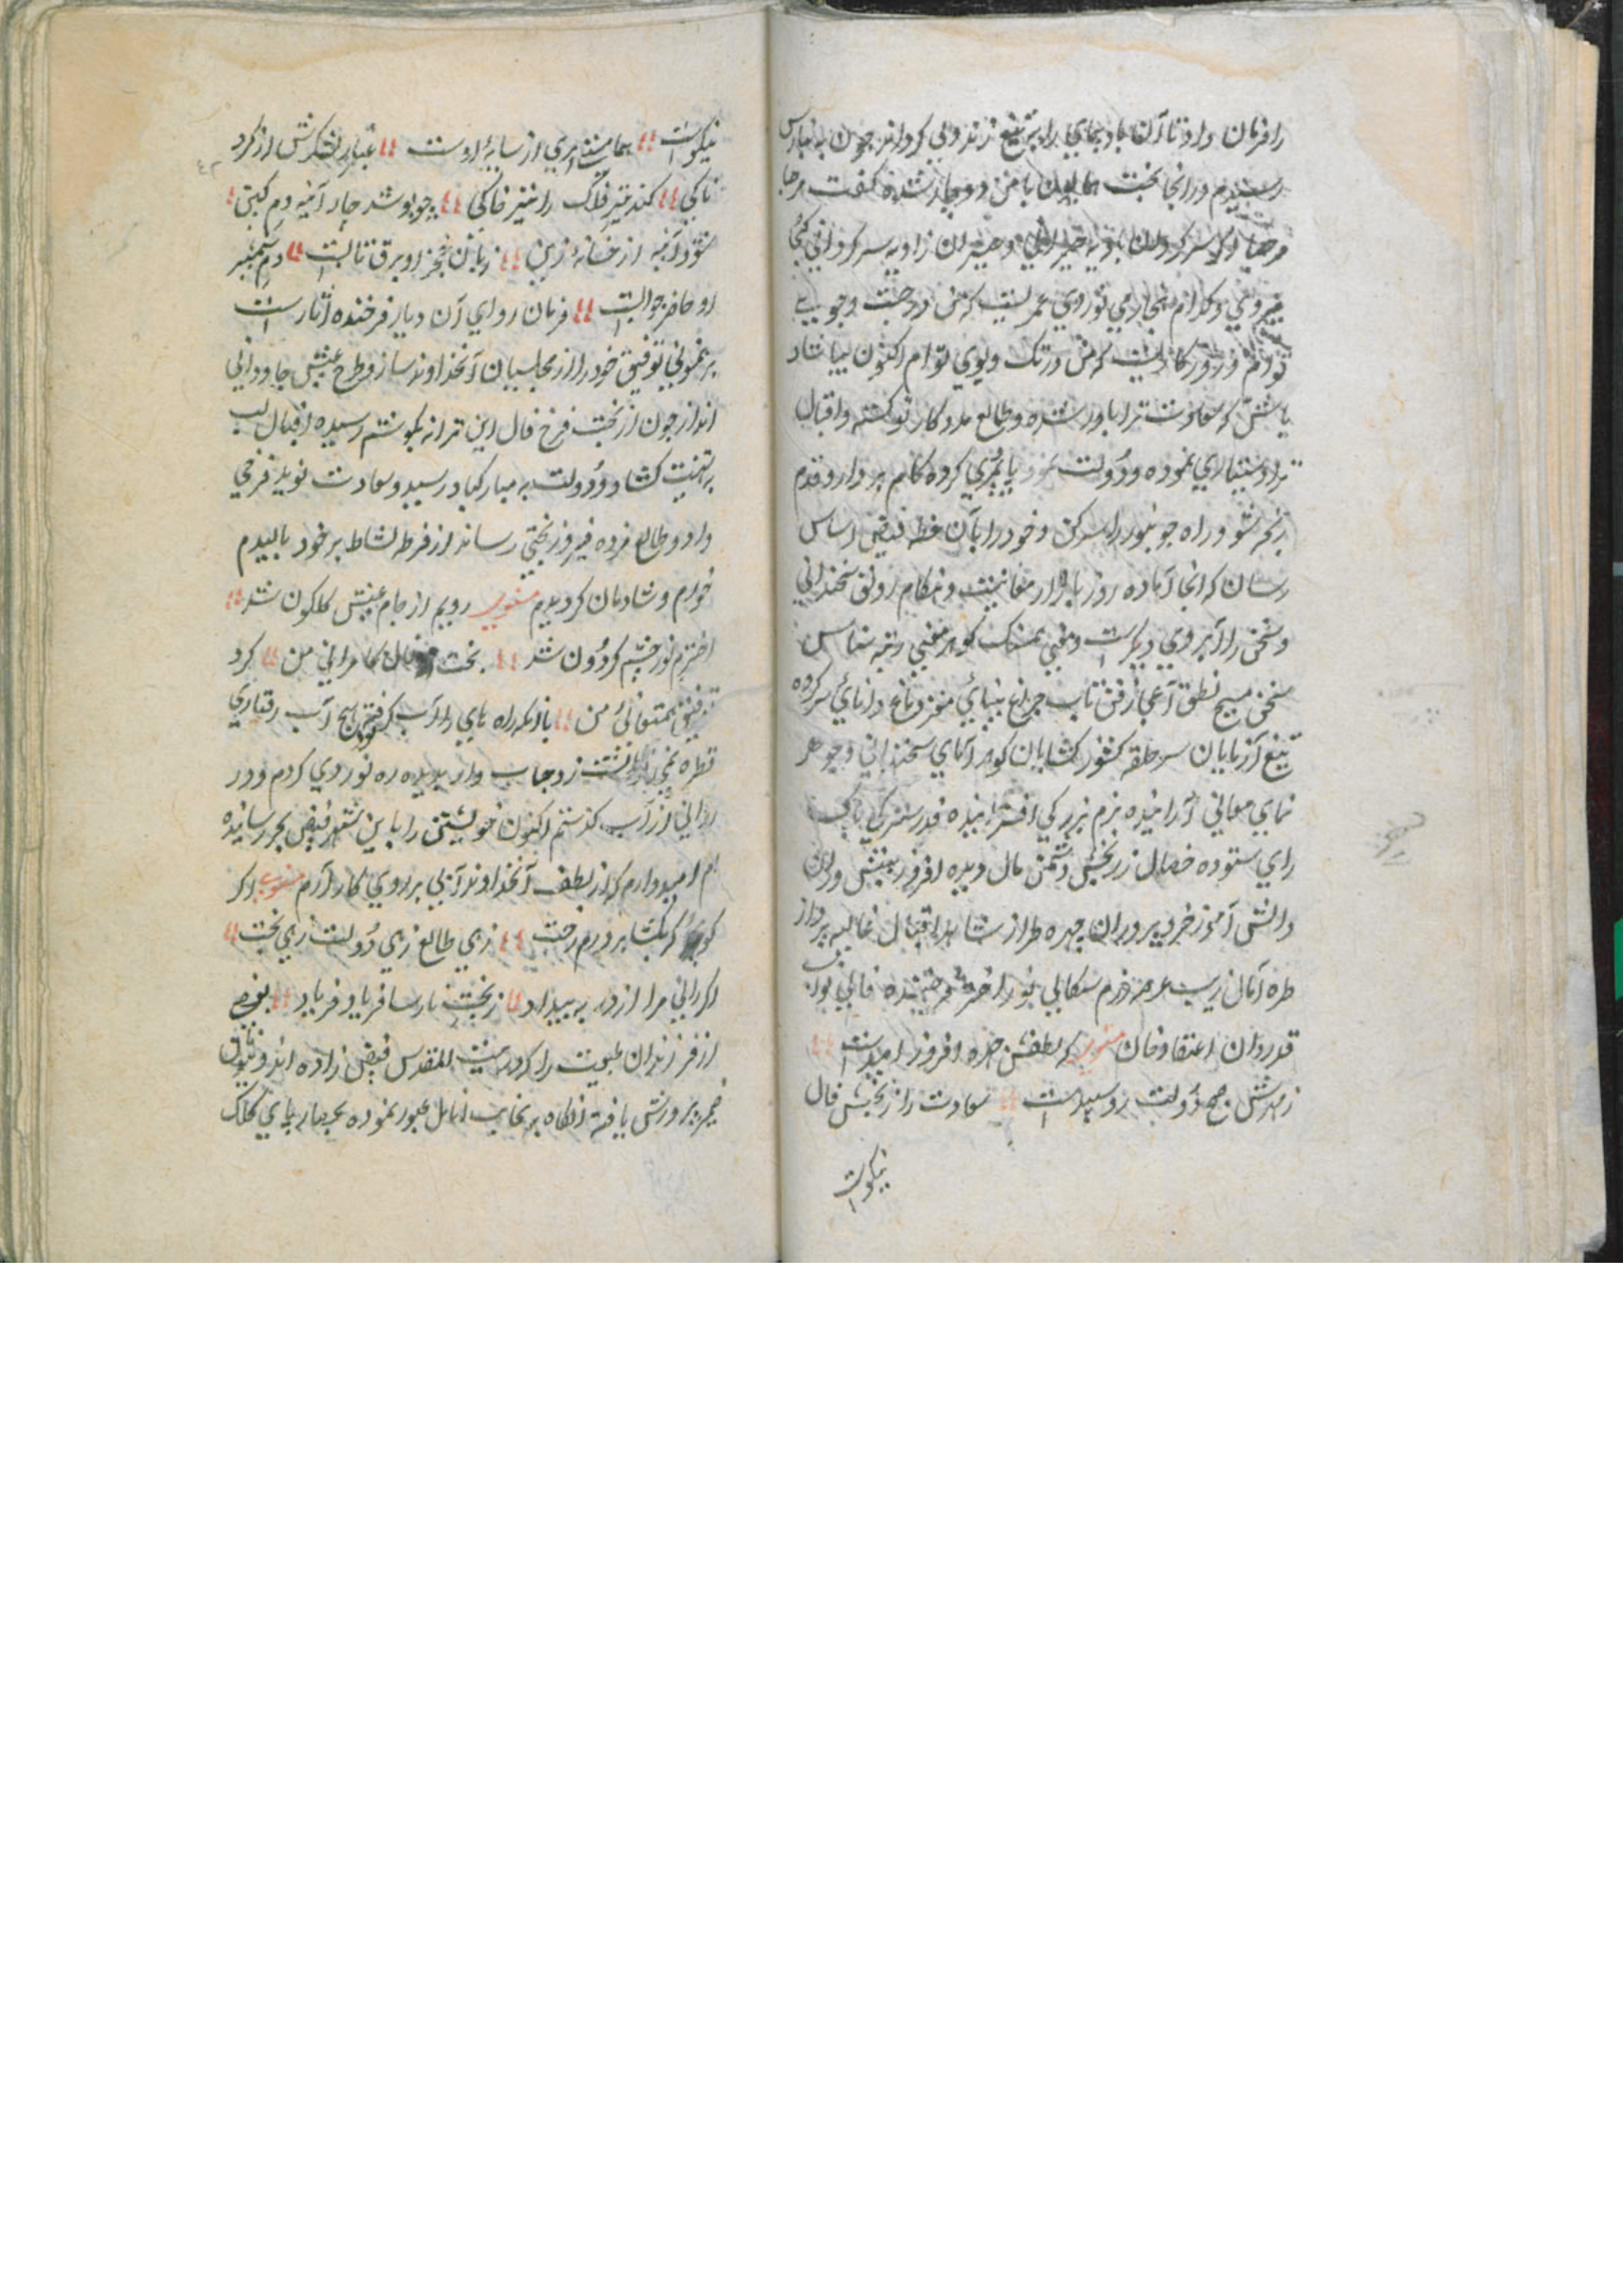 را فرمان داد تا آن باد پیمای را بر تیغ زند ولی کرداند چون به بنارس
رسیدم در انجا بخت همایون با من دوچار شده گفت مرحبا
مرحبا ای سر کردان بادیه حیرانی و حیران زاویه سرکردانی کجا
میروی و کدام هنجار می نوردی عمریست که من در جست وجوی
توام و روزگاریست که من در تک وپوی توام اکنون بیا شاد
باش که سعادت ترا یاور شده و طالع مددکار تو گشته و اقبال
ترا دستیاری نموده و دولت پایمردی کرده کام بردار و قدم
رنجه شو و راه جونپور را سر کن و خود را بآن خطه فیض اساس
رسان که انجا آماده روز بازار معانیست و هنگام رونق سخندانی
و سخن را آبروی دیگرست و معنی سنج گوهر معنی رتبه شناس
سخن مسیح نطق اعجاز فن تاب چراغ بینایی مغز دماغ دانایی سر کرده
تیغ آزمایان سر حلقه کشور کشایان گوهر آمای سخندانی و جوهر
نمای معانی آرائنده بزم بزرگی افزاینده قدر سترگی پاک
رای ستوده خصال زر بخش دشمن مال دیده افروز بینش وران
دانش آموز خرد پروران چهره طراز شاهد اقبال غالیه پرداز
طره آمال زیب عرصه خرم سگالی نور اختر فرخنده فالی نواب
قدردان اعتقاد خان مثنوی که لطفش چهره افروز امیدست
ز مهرش صبح دولت رو سپیدست سعادت را ز بختش فال
نیکوست
نیکوست هما مشت پری از سایهٔ اوست غبار لشکرش از گرد
ناکی کند تیر فلک را تیر خاکی چو پوشد چار آئینه دم کین
شود آئینه از خانهٔ زین زبان خنجر او برق تابست دم شمشیر
او حاضر جوابست فرمان روای آن دیار فرخنده آثارست
برهنمونی توفیق خود را از مجلسیان آنخداوند ساز و طرح عیش جاودانی
انداز چون از بخت فرخ فال این ترانه بگوشم رسید اقبال لب
به تهنیت کشاد و دولت به مبارکباد رسید و سعادت نوید فرخی
داد و طالع مژده فیروز بختی رساند از فرط نشاط بر خود بالیدم
خورم و شادمان کردیدم مثنوی رویم از جام عیش گلگون شد
اخترم نور چشم گردون شد بخت کامرانی من کرد
توفیق همعنانی من بآنکه راه پای را آب گرفته آب رفتاری
قطره زد حباب وار بدیده ره نوردی کردم و در
روانی از آب گذشتم اکنون خویشتن را باین شهر فیض بهر رسانیده
ام امیدوارم که از لطف آنخداوند آبی بر روی کار آرم مثنوی اگر
گر بکشاید درم رخت زهی طالع زهی دولت زهی بخت
اگر رانی مرا از در به بیداد ز بخت نارسا فریاد فریاد
از فرزندان طبیعت را که در بیت المقدس فیض زاده اند و
ضمیر پرورش یافته انگاه بر نخاب انامل عبور نموده بعصار پای کلک